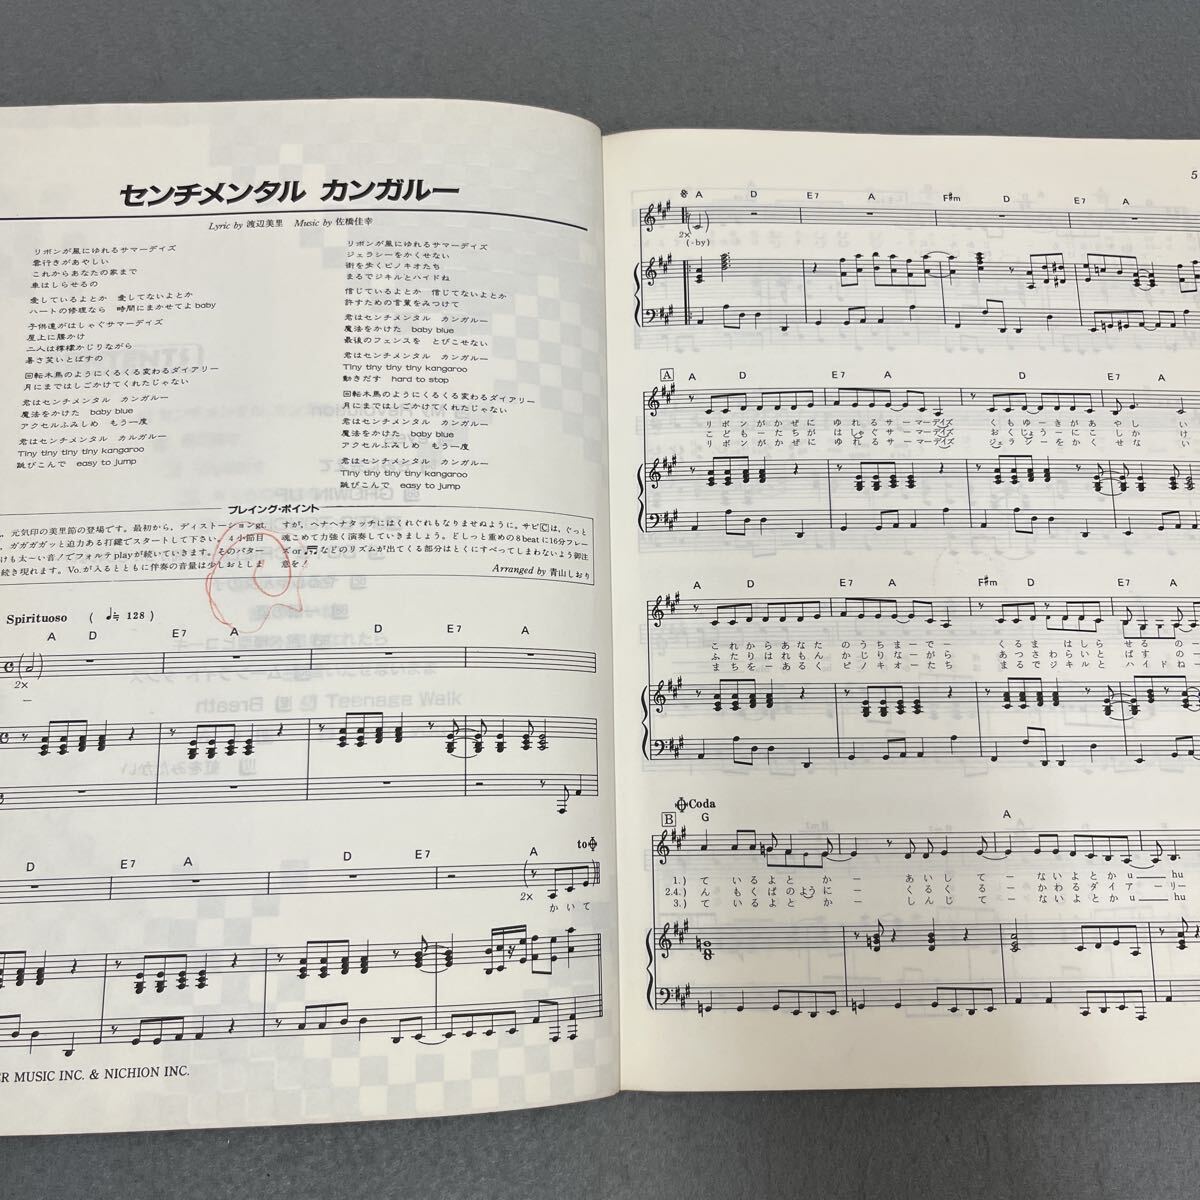 センチメンタル カンガルー
Lyric by 渡辺美里 Music by 佐橋佳幸
リボンが風にゆれるサマーデイズ
雲行きがあやしい
これからあなたの家まで
車はしらせるの
愛しているよとか 愛してないよとか
ハートの修理なら 時間にまかせてよbaby
子供達がはしゃぐサマーデイズ
屋上に腰かけ
二人は檸檬かじりながら
暑さ笑いとばすの
回転木馬のようにくるくる変わるダイアリー
月にまではしごかけてくれたじゃない
君はセンチメンタル カンガルー
魔法をかけた baby blue
アクセルふみしめ もう一度
君はセンチメンタル カルガルー
Tiny tiny tiny tiny kangaroo
跳びこんで easy to jump
リボンが風にゆれるサマーデイズ
ジェラシーをかくせない
街を歩くピノキオたち
まるでジキルとハイドね
信じているよとか 信じてないよとか
許すための言葉をみつけて
君はセンチメンタル カンガルー
魔法をかけた baby blue
最後のフェンスを とびこせない
君はセンチメンタル カンガルー
Tiny tiny tiny tiny kangaroo
動きだす hard to stop
回転木馬のようにくるくる変わるダイアリー
月にまではしごかけてくれたじゃない
君はセンチメンタル カンガルー
魔法をかけた baby blue
アクセルふみしめ もう一度
君はセンチメンタル カンガルー
Tiny tiny tiny tiny kangaroo
跳びこんで easy to jump
プレイング・ポイント
、元気印の美里節の登場です。最初から、ディストーションgt.
、ガガガガッと迫力ある打鍵でスタートして下さい。4小節目
けも太〜い音!でフォルテplayが続いていきます。そのパター
続き現れます。Vo.が入るとともに伴奏の音量は少しおとしま
すが、ヘナヘナタッチにはくれぐれもなりませぬように。サビCは、ぐっと
魂こめて力強く演奏していきましょう。どしっと重めの8beatに16分フレー
ズorなどのリズムが出てくる部分はとくにすべってしまわないよう御注
意を!
Arranged by 青山しおり
Spirituoso ( ♩≒128 )
A D E7 A D E7 A
2x
D E7 A D E7 A to
2x
かいて
ER MUSIC INC. & NICHION INC.
5
A D E7 A F#m D E7 A
2x
(-by)
A
A D E7 A D E7 A
リボンがかぜに ゆれるサーマーデイズ くもゆーきがあやしい
こどもーたちが はしゃぐサーマーデイズ おくじょうーにこしかけ
リボンがかぜに ゆれるサーマーデイズ ジェラシーをかくせない
A D E7 A F#m D E7 A
これからあなた のうちまーでー くるま はしら せる の
ふたりはれもん かじりなーがら あつさ わらいと ばす の
まちをーあるく ピノキオーたち まるで ジキルと ハイド ねー
Coda
B
G A
1.) ているよとか ー あいしてー ないよとかu hu
2.4.) んもくばのように ー くるくるー かわるダイアーリー
3.) ているよとか ー しんじてー ないよとかu hu